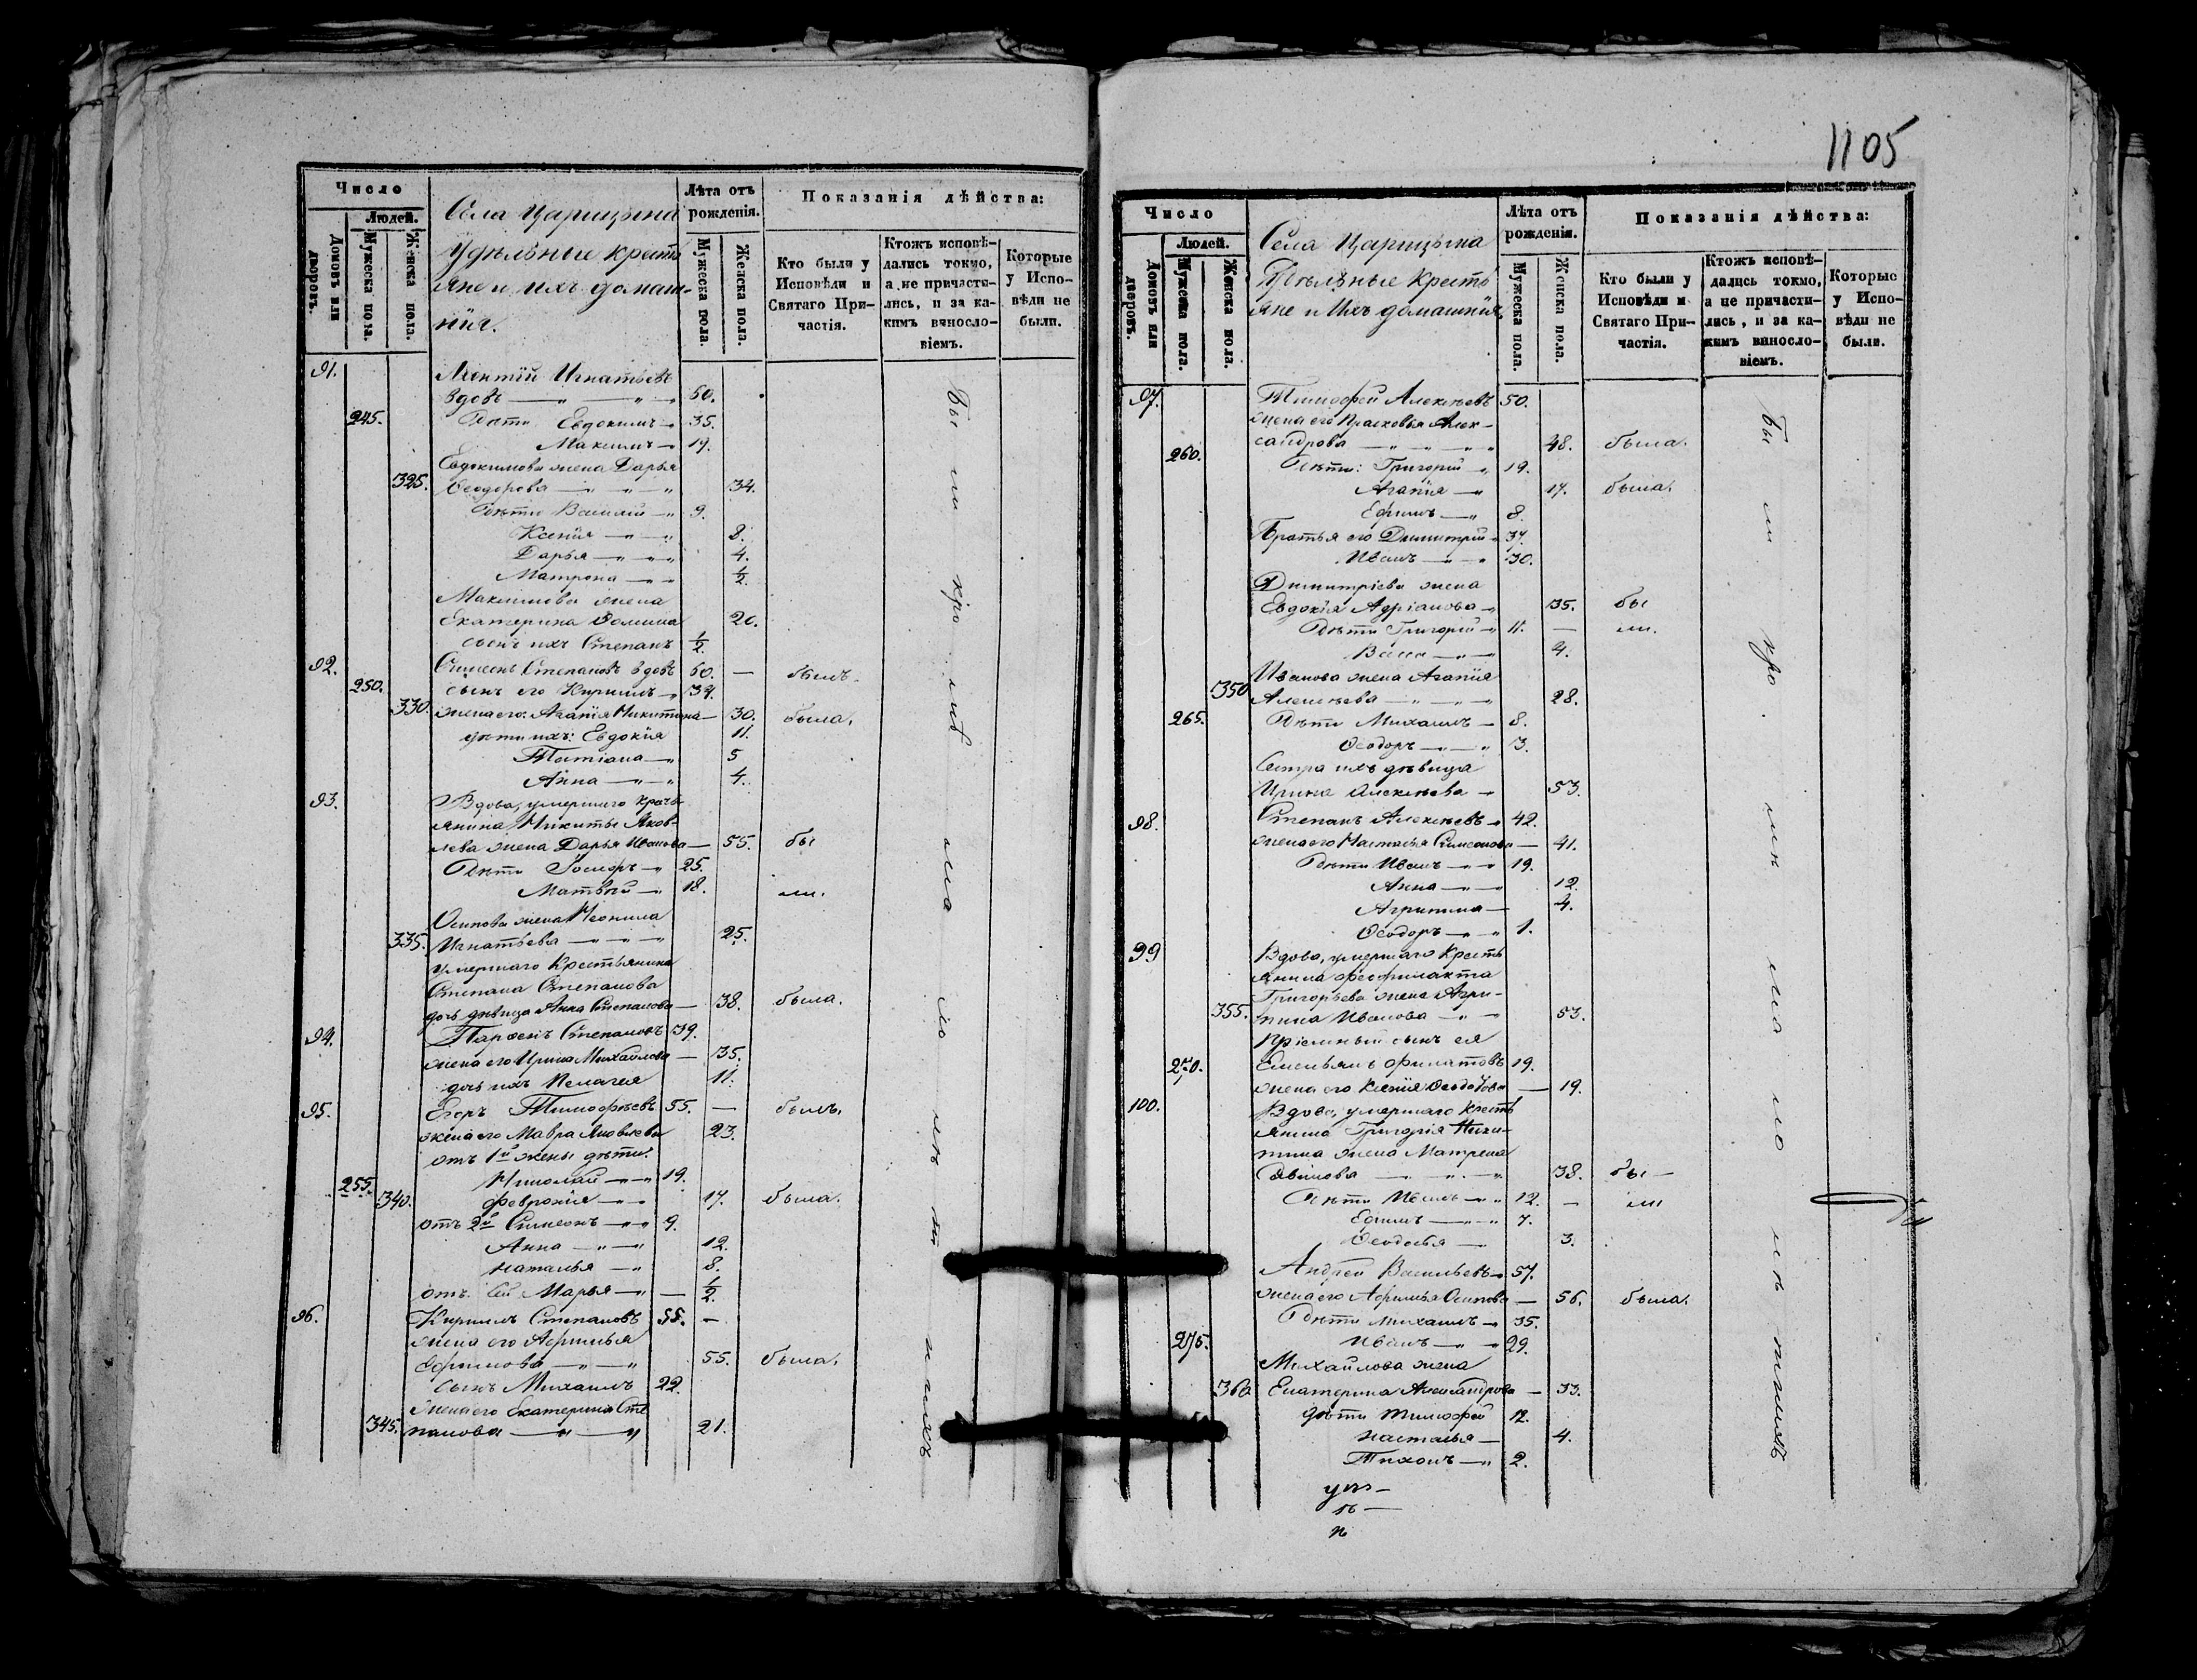 Число
Людей.
Домовъ или дворовъ.
Мужеска пола.
Женска пола.
Села Царицына
Удѣльные кресть
яне и ихъ домаш-
нія.
Лѣта отъ рожденія.
Мужеска пола.
Женска пола.
Показанія дѣйства:
Кто были у Исповѣди и Святаго При-частія.
Ктожъ исповѣ-дались токмо, а не причасти-лись, и за ка-кимъ винослo-віемъ.
Которые у Испо-вѣди не были.
91. Игнатьевъ
вдовъ 60.
245. Дѣти Евдокимъ 35.
Максимъ 19.
Евдокимова жена Дарья
325. Ѳеодорова 34.
Дѣти Василій 9.
Ксенія 8.
Дарья 4.
Матрона ½
Максимова жена
Екатерина Ѳомина 20.
сынъ ихъ Степанъ ½
92. Симеонъ Степановъ вдовъ 60. — былъ.
250. сынъ его Кириллъ 34.
330. жена его Агапія Никитина — 30. была.
дѣти ихъ: Евдокія 11.
Татіана 5
Анна 4.
93. Вдова, умершаго кресть
янина Никиты Яков-
лева жена Дарья Иванова — 55. бы
Дѣти Іосифъ 25.
Матвѣй 18. ли.
Осипова жена Неонила
335. Игнатьева 25.
умершаго Крестьянина
Степана Степанова
дочь дѣвица Анна Степанова — 38. была.
94. Парѳенъ Степановъ 39.
жена его Ирина Михайлова — 35.
дочь ихъ Пелагея 11.
95. Егоръ Тимоѳеевъ 55. — былъ.
жена его Мавра Яковлева 23.
отъ 1й жены дѣти:
255. Николай 19.
340. Февронія 17. была.
отъ 2й Симеонъ 9.
Анна 12.
Наталья 8.
отъ сей Марья — ½
96. Кириллъ Степановъ 55. —
жена его Афимья
Ефимова 55. была.
сынъ Михаилъ 22.
жена его Екатерина Сте
345. панова 21.
1105
Число
Людей.
Домовъ или дворовъ.
Мужеска пола.
Женска пола.
Села Царицына
Удѣльные Кресть
яне и Ихъ домашнія
Лѣта отъ рожденія.
Мужеска пола.
Женска пола.
Показанія дѣйства:
Кто были у Исповѣди и Святаго При-частія.
Ктожъ исповѣ-дались токмо, а не причасти-лись, и за ка-кимъ винослo-віемъ.
Которые у Испо-вѣди не были.
97. Тимофей Алексѣевъ 50.
жена его Прасковья Алек-
сандрова 48. была.
260. Дѣти: Григорій 19.
Агапія 17. была.
Ефимъ 8.
Братья его Димитрій 37.
Иванъ 30.
Димитріева жена
Евдокія Адріанова 35. бы
Дѣти Григорій 11. — ли.
4.
Иванова жена Агапія
350 Алексѣева 28.
265. Дѣти Михаилъ 8.
Ѳеодоръ 3.
Сестра ихъ дѣвица
Ирина Алексѣева 53.
98. Степанъ Алексѣевъ 42.
жена его Настасья Симеонова — 41.
Дѣти Иванъ 19.
Анна 12.
Агрипина 4.
Ѳеодоръ 1.
99 Вдова, умершаго Кресть
янина Феофилакта
Григорьева жена Агри-
355. пина Иванова 53.
Пріемный сынъ ея
270. Емельянъ Филатовъ 19.
жена его Ксенія — 19.
100. Вдова, умершаго Кресть
янина Григорія Ники-
тина жена Матрена
38. бы —
Дѣти Иванъ 12. — ли
Ефимъ 7.
Ѳеодосья 3.
Андрей Васильевъ 57.
жена его Афимья Осипова — 56. была.
Дѣти Михаилъ 35.
275. Иванъ 29.
Михайлова жена
360 Екатерина Александрова — 33.
дѣти Тимофей 12.
Настасья 4.
Тихонъ 2.